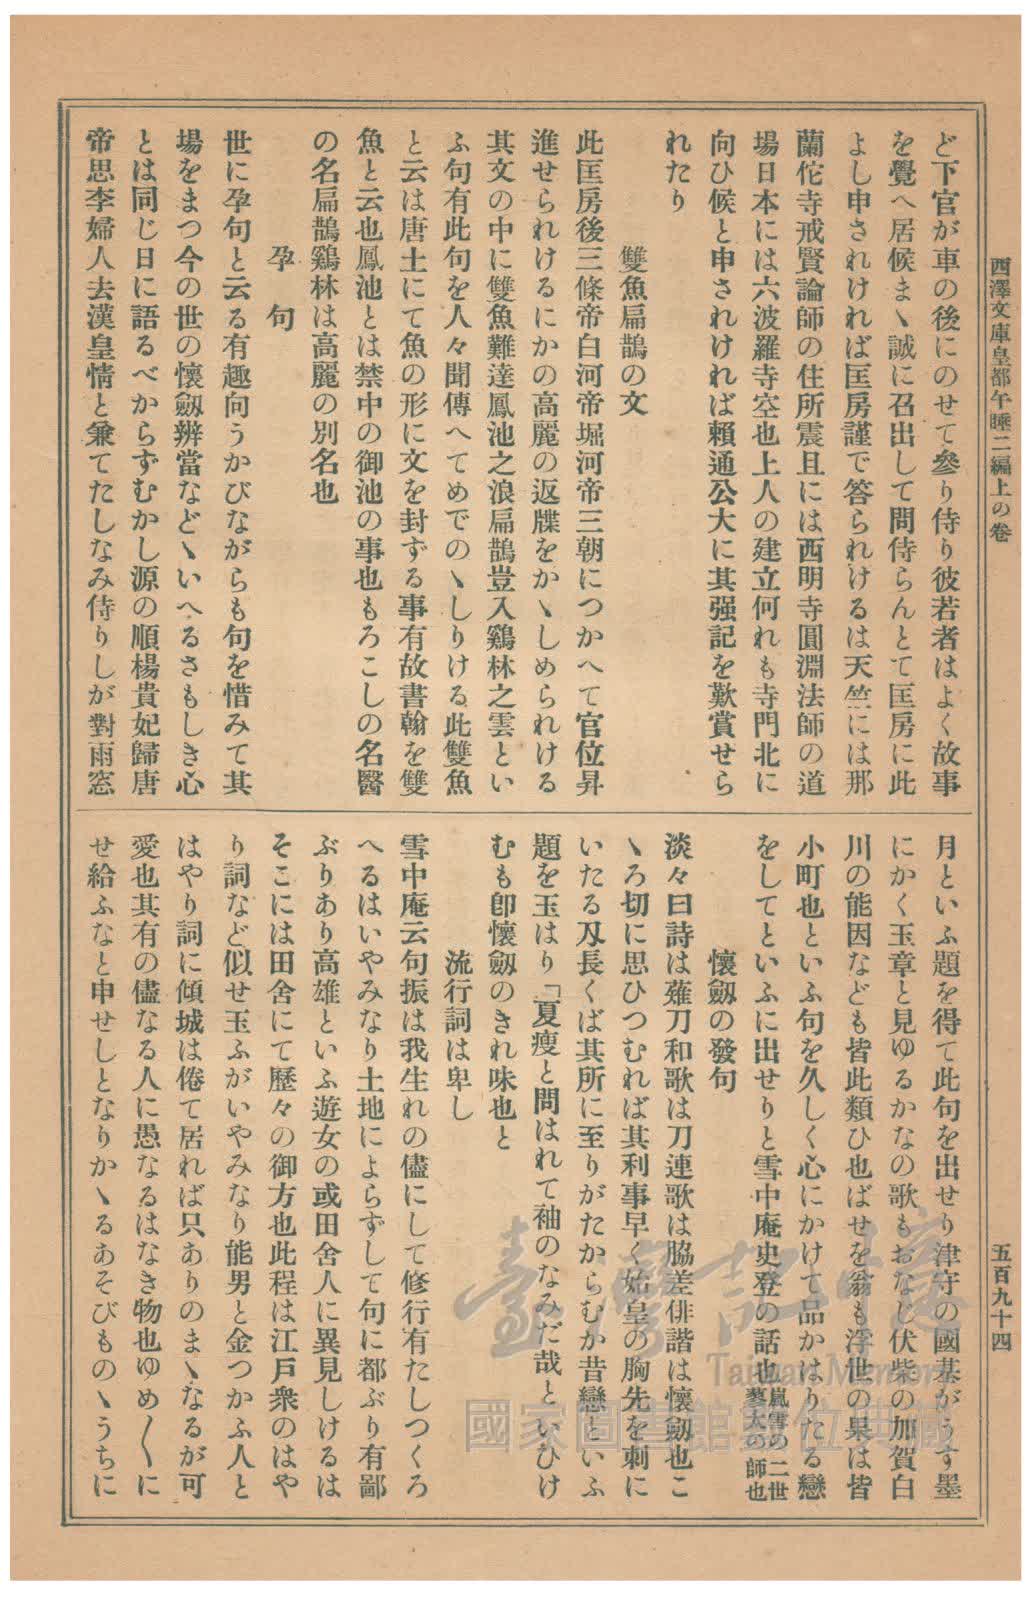 西澤文庫皇都午睡二編上の卷
五百九十四
ど下官が車の後にのせて參り侍り彼若者はよく故事
を覺へ居候まゝ誠に召出して問侍らんとて匡房に此
よし申されければ匡房謹で答られけるは天竺には那
蘭佗寺戒賢論師の住所震且には西明寺圓淵法師の道
場日本には六波羅寺空也上人の建立何れも寺門北に
向ひ候と申されければ賴通公大に其强記を歎賞せら
れたり
雙魚扁鵲の文
此匡房後三條帝白河帝堀河帝三朝につかへて官位昇
進せられけるにかの高麗の返牒をかゝしめられける
其文の中に雙魚難達鳳池之浪扁鵲豈入鷄林之雲とい
ふ句有此句を人々聞傳へてめでのゝしりける此雙魚
と云は唐土にて魚の形に文を封ずる事有故書翰を雙
魚と云也鳳池とは禁中の御池の事也もろこしの名醫
の名扁鵲鷄林は高麗の別名也
孕句
世に孕句と云る有趣向うかびながらも句を惜みて其
場をまつ今の世の懷劔辨當などゝいへるさもしき心
とは同じ日に語るべからずむかし源の順楊貴妃歸唐
帝思李婦人去漢皇情と兼てたしなみ侍りしが對雨窓
月といふ題を得て此句を出せり津守の國基がうす墨
にかく玉章と見ゆるかなの歌もおなじ伏柴の加賀白
川の能因なども皆此類ひ也ばせを翁も浮世の果は皆
小町也といふ句を久しく心にかけて品かはりたる戀
をしてといふに出せりと雪中庵史登の話也嵐雪の二世
蓼太の師也
懷劔の發句
淡々曰詩は薙刀和歌は刀連歌は脇差俳諧は懷劔也こ
ゝろ切に思ひつむれば其利事早く始皇の胸先を刺に
いたる刄長くば其所に至りがたからむか昔戀といふ
題を玉はり「夏瘦と問はれて袖のなみだ哉といひけ
むも卽懷劔のきれ味也と
流行詞は卑し
雪中庵云句振は我生れの儘にして修行有たしつくろ
へるはいやみなり土地によらずして句に都ぶり有鄙
ぶりあり高雄といふ遊女の或田舍人に異見しけるは
そこには田舍にて歷々の御方也此程は江戶衆のはや
り詞など似せ玉ふがいやみなり能男と金つかふ人と
はやり詞に傾城は倦て居れば只ありのまゝなるが可
愛也其有の儘なる人に愚なるはなき物也ゆめ〱に
せ給ふなと申せしとなりかゝるあそびものゝうちに
臺灣記憶
Taiwan Memory
國家圖書館數位典藏